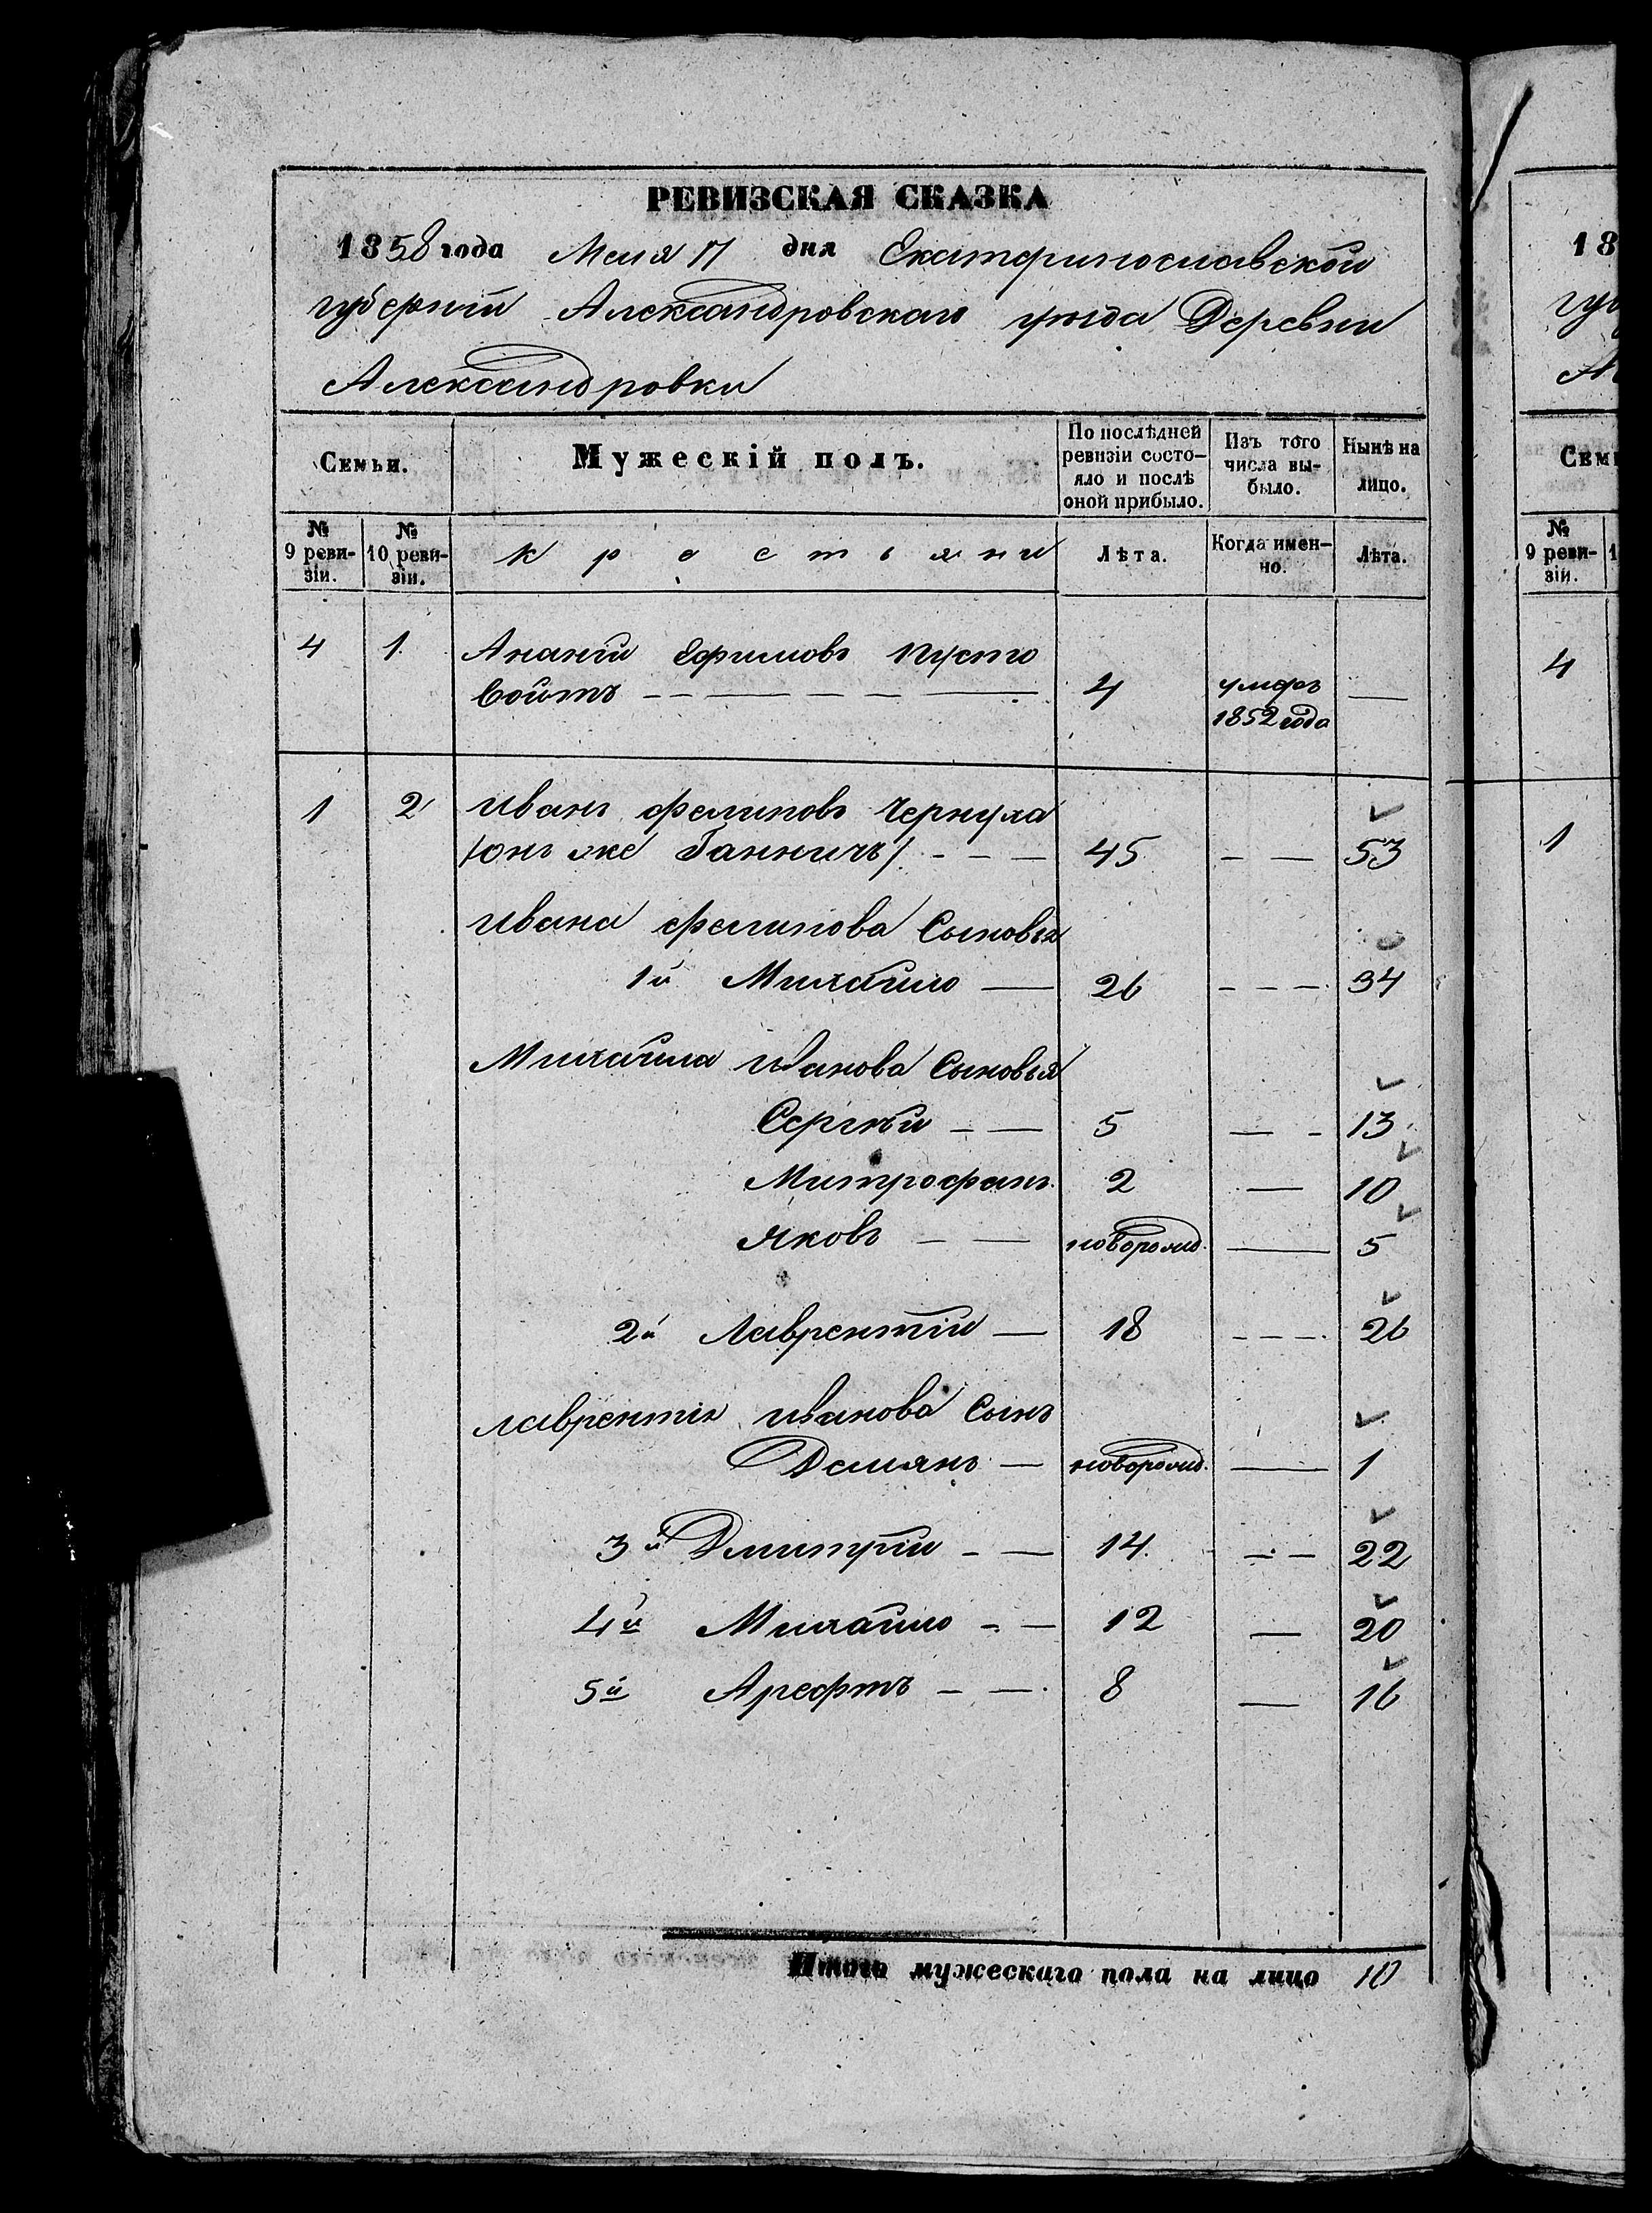 РЕВИЗСКАЯ СКАЗКА
1858 года Мая 17 дня Екатеринославской
губернии Александровскаго уезда Деревни
Александровки
Семьи.
Мужескій полъ.
По послѣдней ревизіи состо-
яло и послѣ
оной прибыло.
Изъ того
числа вы-
было.
Нынѣ на
лицо.
№
9 реви-
зіи.
№
10 реви-
зіи.
Крестьяни
Лѣта.
Когда имен-
но.
Лѣта.
4 1. Ананій Ефимовъ Пусто
Войтъ 4 умеръ
1852 года
1 2 Иванъ Филиповъ Чернуха
/онъ же Ганничъ/ 45 53
Ивана Филипова Сыновья
1й Михайло 26 34
Михайла Иванова Сыновья
Сергѣй 5 13
Митрофанъ 2 10
Яковъ новорожд. 5
2й Лаврентій 18 26
Лаврентія Иванова Сынъ
Демянъ новорожд. 1
3й Дмитрій 14 22
4й Михайло 12 20
5й Арефтъ 8 16
Итого мужескаго пола на лицо 10
18
Сем
№
9 реви-
зіи.
4
1